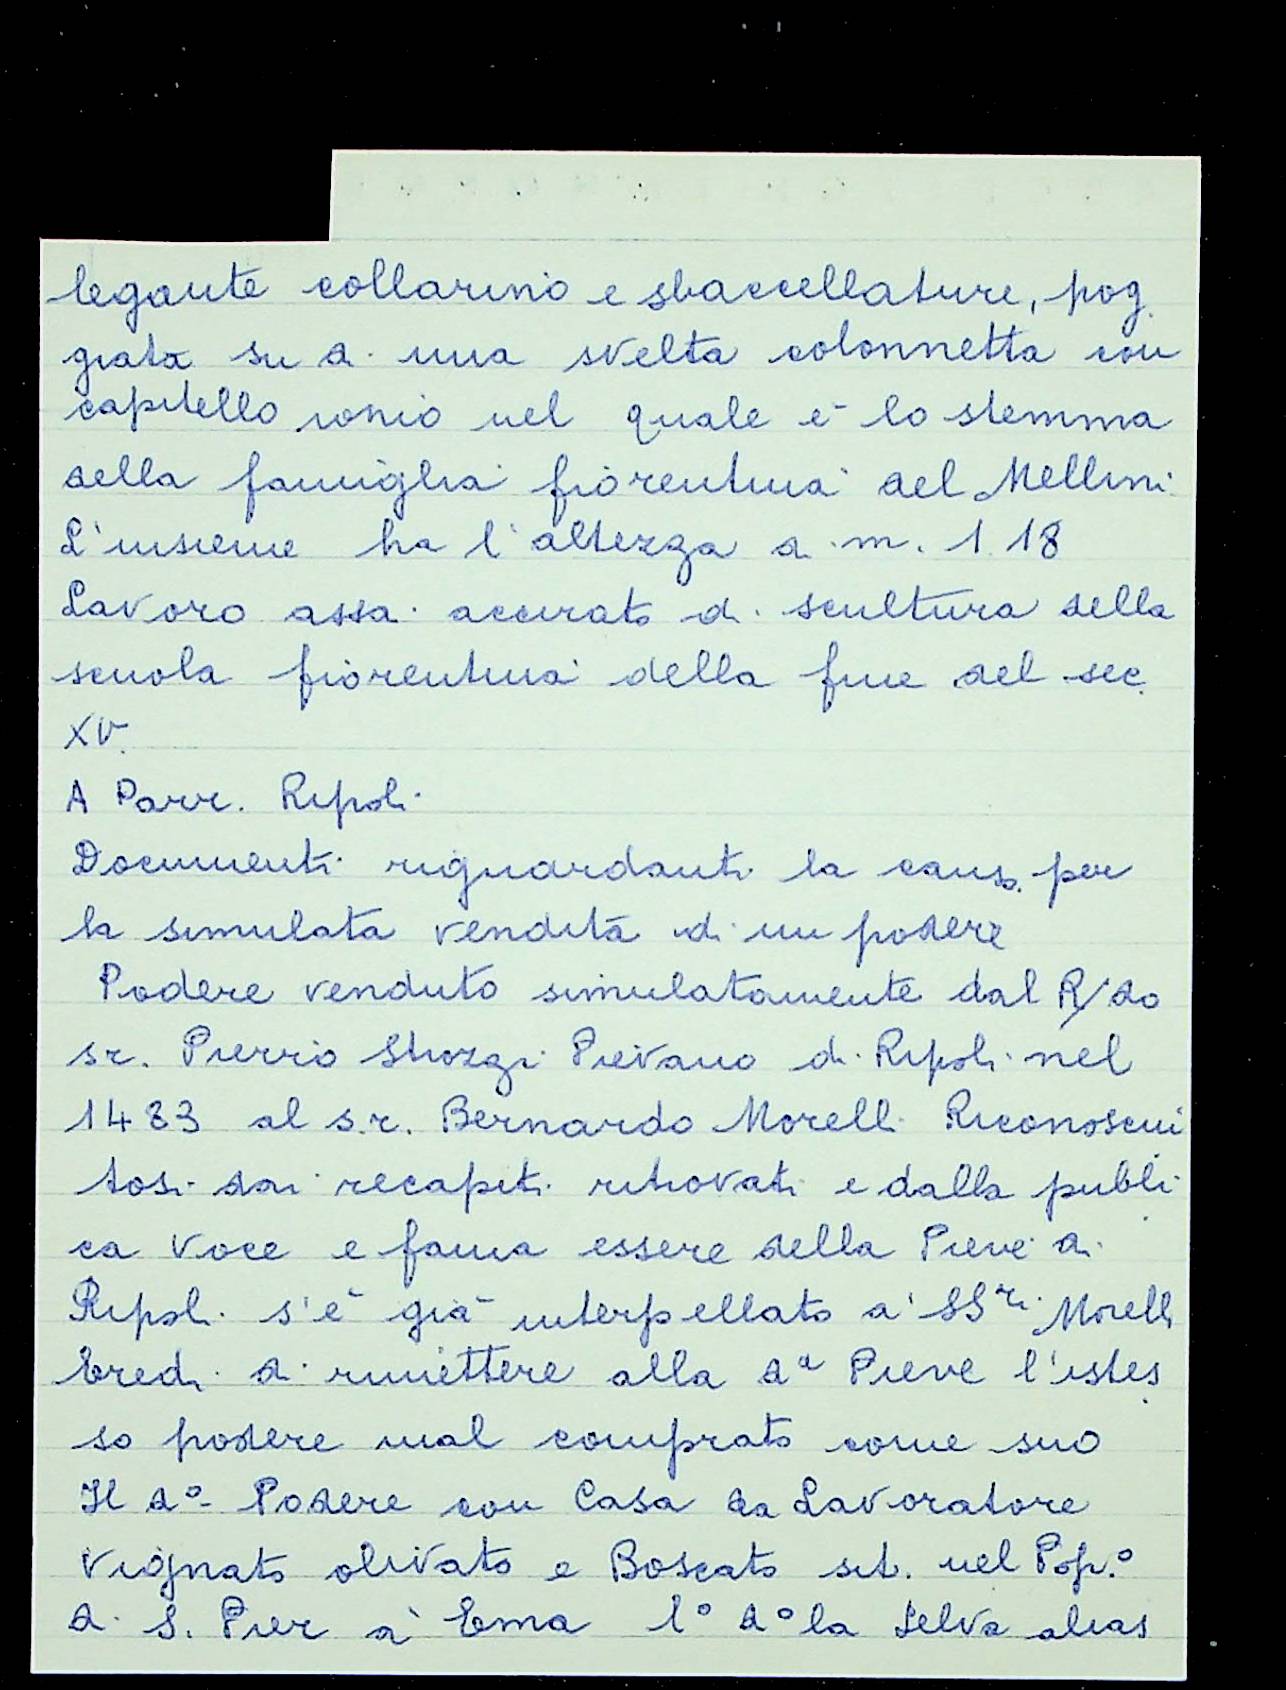 legante collarino e sbaccellature, pog
giata su di una svelta colonnetta con
capitello ionio nel quale è lo stemma
della famiglia fiorentina del Mellini
L'insieme ha l'altezza di m. 1.18
Lavoro assai accurato di scultura della
scuola fiorentina della fine del sec.
XV.
A Parr. Ripoli
Documenti riguardanti la causa per
la simulata vendita di un podere
Podere venduto simulatamente dal R/do
sr. Pierrio Strozzi Pievano di Ripoli nel
1483 al s.r. Bernardo Morelli Riconosciu
tosi dai recapiti ritrovati e dalla publi
ca voce e fama essere della Pieve di
Ripoli s'è già interpellato a' SSri Morelli
Eredi di rimettere alla da Pieve l'istes
so podere mal comprato come suo
Il do Podere con Casa da Lavoratore
vignato olivato e Boscato sit. nel Pop.o
di S. Pier a Ema lo do la Selva alias